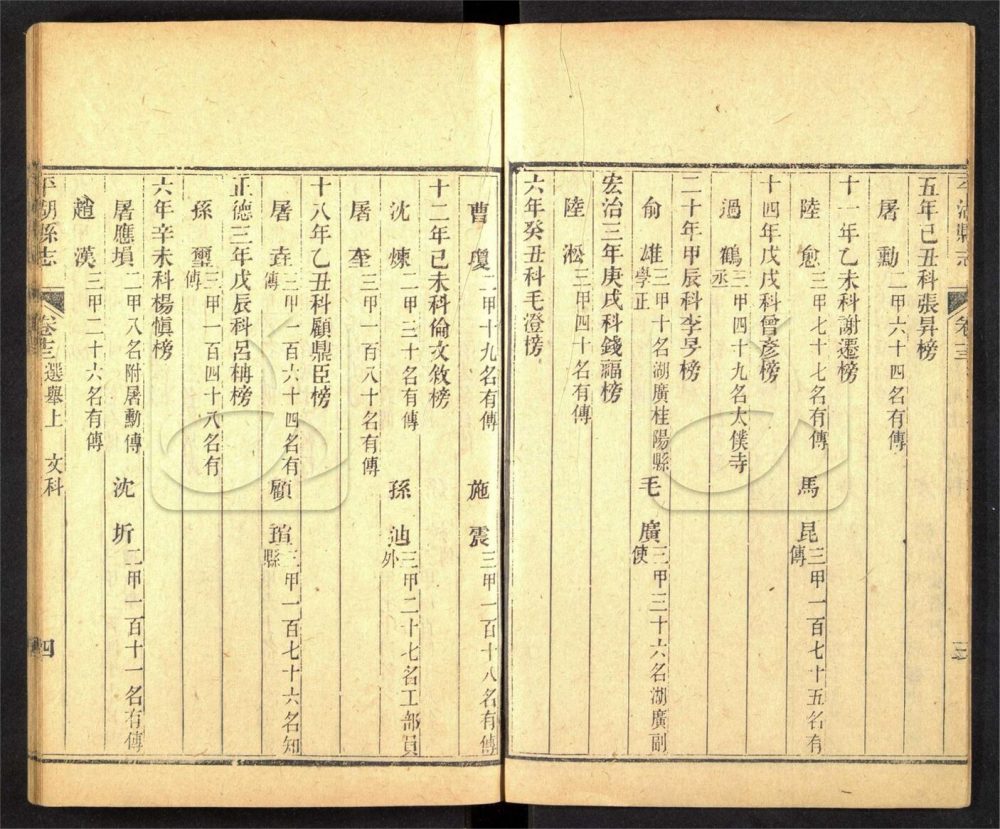 平湖縣志 卷十三 三
五年己丑科張昇榜
屠勳二甲六十四名有傳
十一年乙未科謝遷榜
陸愈三甲七十七名有傳 馬昆三甲一百七十五名有傳
十四年戊戌科曾彥榜
過鶴三甲四十九名太僕寺丞
二十年甲辰科李旻榜
俞雄三甲十名湖廣桂陽縣學正 毛廣三甲三十六名湖廣副使
宏治三年庚戌科錢福榜
陸淞三甲四十名有傳
六年癸丑科毛澄榜
曹瓊二甲十九名有傳 施震三甲一百十八名有傳
十二年己未科倫文敘榜
沈煉二甲三十名有傳 孫迪三甲二十七名工部員外
屠奎三甲一百八十名有傳
十八年乙丑科顧鼎臣榜
屠垚三甲一百六十四名有傳 顧瑄三甲一百七十六名知縣
正德三年戊辰科呂柟榜
孫璽三甲一百四十八名有傳
六年辛未科楊愼榜
屠應塤二甲八名附屠勳傳 沈圻三甲一百十一名有傳
趙漢三甲二十六名有傳
平湖縣志 卷十三 選舉上 文科 四